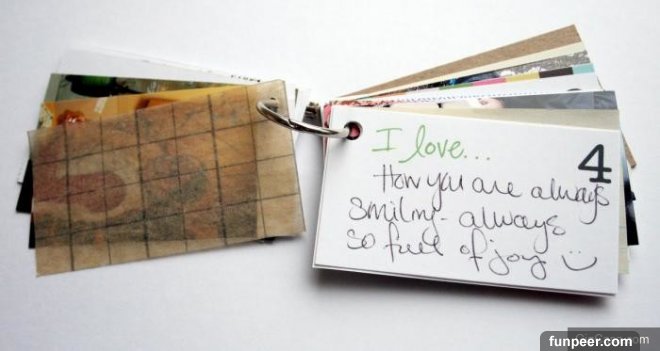 I love...
4
How you are always
smiling - always
so full of joy :)
funpeer.com